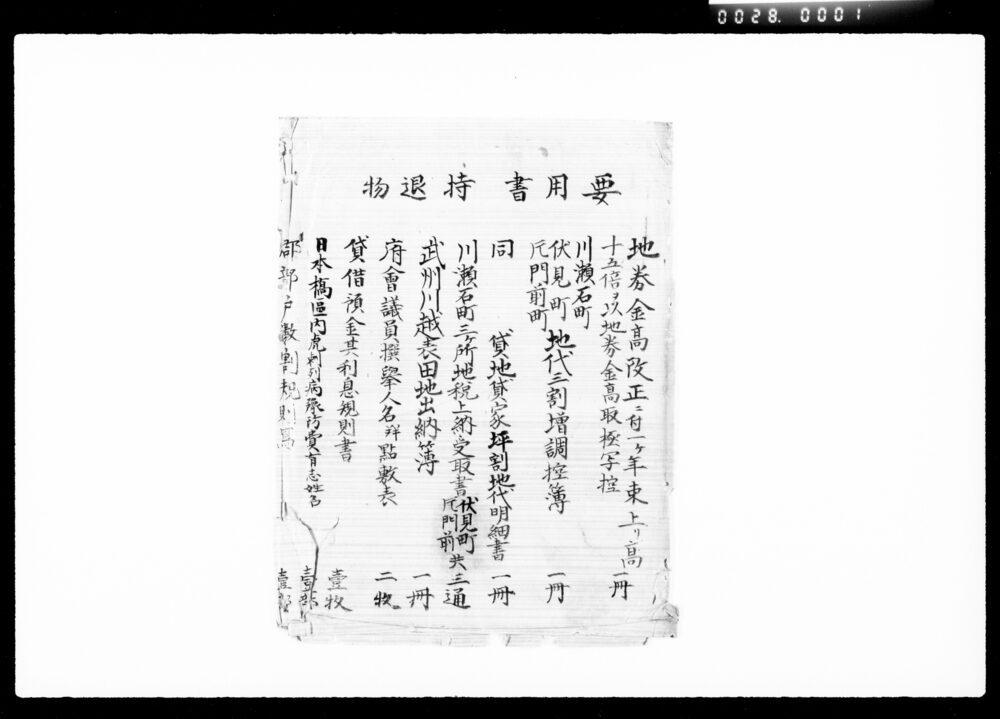 0028. 0001
要用書 持退物
地券金高改正ニ付一ヶ年東上リ高
十五倍ヲ以地券金高取極写控 一冊
川瀬石町
伏見町
圷門前町 地代三割増調控簿 一冊
同 貸地貸家坪割地代明細書 一冊
川瀬石町三ヶ所地税上納受取書 伏見町 門前共 三通
武州川越表田地出納簿 一冊
府會議員撰擧人名并點數表 二牧
貸借預金其利息規則書 壹牧
日本橋區内虎列刺病豫防費有志姓名 壹部
郡部戸數割規則寫 壹